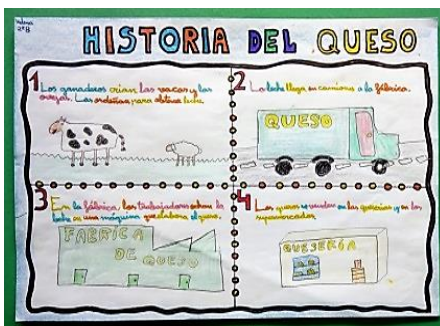 2ºB
HISTORIA DEL QUESO
1 Los ganaderos crian las vacas y las
ovejas. Las ordeñan para obtener leche.
2 La leche llega en camiones a la fábrica.
QUESO
3 En la fábrica, los trabajadores echan la
leche en una máquina que elabora el queso.
FABRICA
DE QUESO
4 Los quesos se venden en las queserías y en los
supermercados.
QUESERÍA